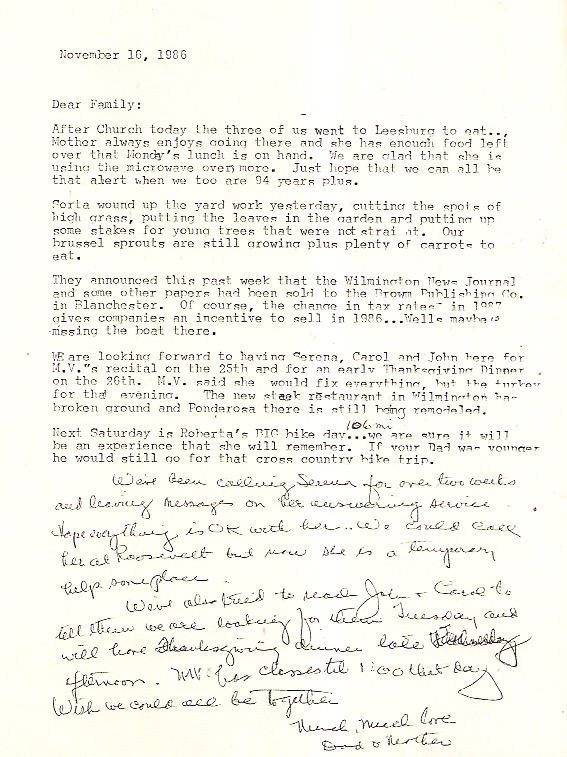 November 16, 1986
Dear Family:
After Church today the three of us went to Leesburg to eat...,
Mother always enjoys going there and she has enough food left
over that Mondy's lunch is on hand. We are glad that she is
using the microwave over more. Just hope that we can all be
that alert when we too are 94 years plus.
Sorta wound up the yard work yesterday, cutting the spots of
high grass, putting the leaves in the garden and putting up
some stakes for young trees that were not strai ht. Our
brussel sprouts are still growing plus plenty of carrots to
eat.
They announced this past week that the Wilmington News Journal
and some other papers had been sold to the Brown Publishing Co.
in Blanchester. Of course, the change in tax rates in 1987
gives companies an incentive to sell in 1986...Wells maybe is
missing the boat there.
WE are looking forward to having Serena, Carol and John here for
M.V."s recital on the 25th and for an early Thanksgiving Dinner
on the 26th. M.V. said she would fix everything, but the turkey
for that evening. The new steak restaurant in Wilmington has
broken ground and Ponderosa there is still being remodeled.
106 mi
Next Saturday is Roberta's BIG bike day...we are sure it will
be an experience that she will remember. If your Dad was younger
he would still go for that cross country bike trip.
We've been calling Serena for over two weeks
and leaving messages on her answering service.
Hope everything is OK with her.. We could call
her at Roosevelt but now she is a temporary
help someplace.
We've also tried to reach John + Carol to
tell them we are looking for them Tuesday and
will have Thanksgiving dinner late Wednesday
afternoon. MV has classes til 1:00 that day.
Wish we could all be together
Much, much love
Dad & Mother